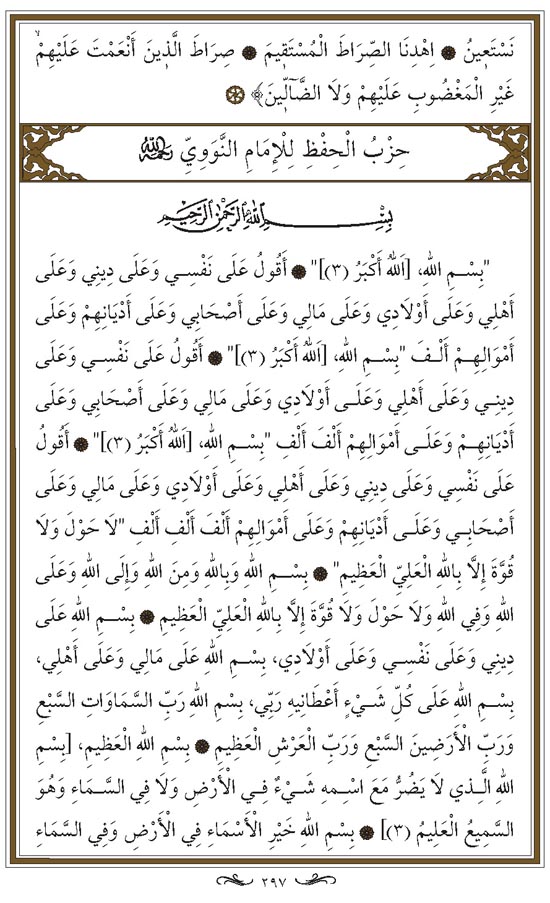 نَسْتَعِينُ ۞ اِهْدِنَا الصِّرَاطَ الْمُسْتَقِيمَ ۞ صِرَاطَ الَّذِينَ أَنْعَمْتَ عَلَيْهِمْ
غَيْرِ الْمَغْضُوبِ عَلَيْهِمْ وَلَا الضَّآلِّينَ﴾ ۞
حِزْبُ الْحِفْظِ لِلْإِمَامِ النَّوَوِيِّ رَحِمَهُ اللهُ
بِسْمِ اللهِ الرَّحْمٰنِ الرَّحِيمِ
"بِسْمِ اللهِ، [اَللهُ أَكْبَرُ (٣)]" ۞ أَقُولُ عَلَى نَفْسِي وَعَلَى دِينِي وَعَلَى
أَهْلِي وَعَلَى أَوْلَادِي وَعَلَى مَالِي وَعَلَى أَصْحَابِي وَعَلَى أَدْيَانِهِمْ وَعَلَى
أَمْوَالِهِمْ أَلْفَ "بِسْمِ اللهِ، [اَللهُ أَكْبَرُ (٣)]" ۞ أَقُولُ عَلَى نَفْسِي وَعَلَى
دِينِي وَعَلَى أَهْلِي وَعَلَى أَوْلَادِي وَعَلَى مَالِي وَعَلَى أَصْحَابِي وَعَلَى
أَدْيَانِهِمْ وَعَلَى أَمْوَالِهِمْ أَلْفَ أَلْفِ "بِسْمِ اللهِ، [اَللهُ أَكْبَرُ (٣)]" ۞ أَقُولُ
عَلَى نَفْسِي وَعَلَى دِينِي وَعَلَى أَهْلِي وَعَلَى أَوْلَادِي وَعَلَى مَالِي وَعَلَى
أَصْحَابِي وَعَلَى أَدْيَانِهِمْ وَعَلَى أَمْوَالِهِمْ أَلْفَ أَلْفِ أَلْفِ "لَا حَوْلَ وَلَا
قُوَّةَ إِلَّا بِاللهِ الْعَلِيِّ الْعَظِيمِ" ۞ بِسْمِ اللهِ وَبِاللهِ وَمِنَ اللهِ وَإِلَى اللهِ وَعَلَى
اللهِ وَفِي اللهِ وَلَا حَوْلَ وَلَا قُوَّةَ إِلَّا بِاللهِ الْعَلِيِّ الْعَظِيمِ ۞ بِسْمِ اللهِ عَلَى
دِينِي وَعَلَى نَفْسِي وَعَلَى أَوْلَادِي، بِسْمِ اللهِ عَلَى مَالِي وَعَلَى أَهْلِي،
بِسْمِ اللهِ عَلَى كُلِّ شَيْءٍ أَعْطَانِيهِ رَبِّي، بِسْمِ اللهِ رَبِّ السَّمَاوَاتِ السَّبْعِ
وَرَبِّ الْأَرَضِينَ السَّبْعِ وَرَبِّ الْعَرْشِ الْعَظِيمِ ۞ بِسْمِ اللهِ الْعَظِيمِ، [بِسْمِ
اللهِ الَّذِي لَا يَضُرُّ مَعَ اسْمِهِ شَيْءٌ فِي الْأَرْضِ وَلَا فِي السَّمَاءِ وَهُوَ
السَّمِيعُ الْعَلِيمُ (٣)] ۞ بِسْمِ اللهِ خَيْرِ الْأَسْمَاءِ فِي الْأَرْضِ وَفِي السَّمَاءِ
٢٩٧